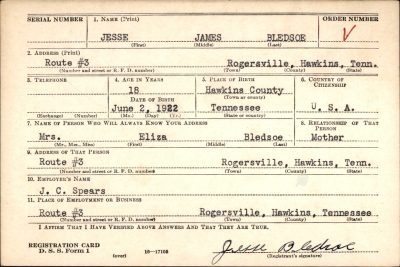 SERIAL NUMBER 1. NAME (Print) ORDER NUMBER
JESSE JAMES BLEDSOE V
(First) (Middle) (Last)
2. ADDRESS (Print)
Route #3 Rogersville, Hawkins, Tenn.
(Number and street or R. F. D. number) (Town) (County) (State)
3. TELEPHONE 4. AGE IN YEARS 5. PLACE OF BIRTH 6. COUNTRY OF
CITIZENSHIP
18 Hawkins County
DATE OF BIRTH (Town or county)
June 2, 1922 Tennessee U. S. A.
(Exchange) (Number) (Mo.) (Day) (Yr.) (State or country)
7. NAME OF PERSON WHO WILL ALWAYS KNOW YOUR ADDRESS 8. RELATIONSHIP OF THAT
PERSON
Mrs. Eliza Bledsoe Mother
(Mr., Mrs., Miss) (First) (Middle) (Last)
9. ADDRESS OF THAT PERSON
Route #3 Rogersville, Hawkins, Tenn.
(Number and street or R. F. D. number) (Town) (County) (State)
10. EMPLOYER'S NAME
J. C. Spears
11. PLACE OF EMPLOYMENT OR BUSINESS
Route #3 Rogersville, Hawkins, Tennessee
(Number and street or R. F. D. number) (Town) (County) (State)
I AFFIRM THAT I HAVE VERIFIED ABOVE ANSWERS AND THAT THEY ARE TRUE.
REGISTRATION CARD
D. S. S. Form 1 16-17105 Jesse Bledsoe
(over) (Registrant's signature)